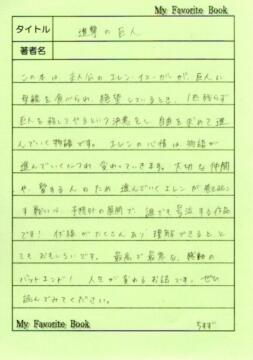 My Favorite Book
タイトル 進撃の巨人
著者名
この本は、主人公のエレン・イエーガーが、巨人に
母親を食べられ、絶望しているとき、1匹残らず
巨人を殺してやるという決意をし、自由を求めて進
んでいく物語です。エレンの心情は物語が
進んでいくにつれ、変わっていきます。大切な仲間
や、愛する人のため、進んでいくエレンが巻き起こ
す戦いは、予想外の展開で、誰でも号泣する作品
です!伏線がたくさんあり理解できると、と
てもおもしろいです。最高で最悪な、感動の
バッドエンド!人生が変わるお話です。ぜひ
読んでみてください。
My Favorite Book